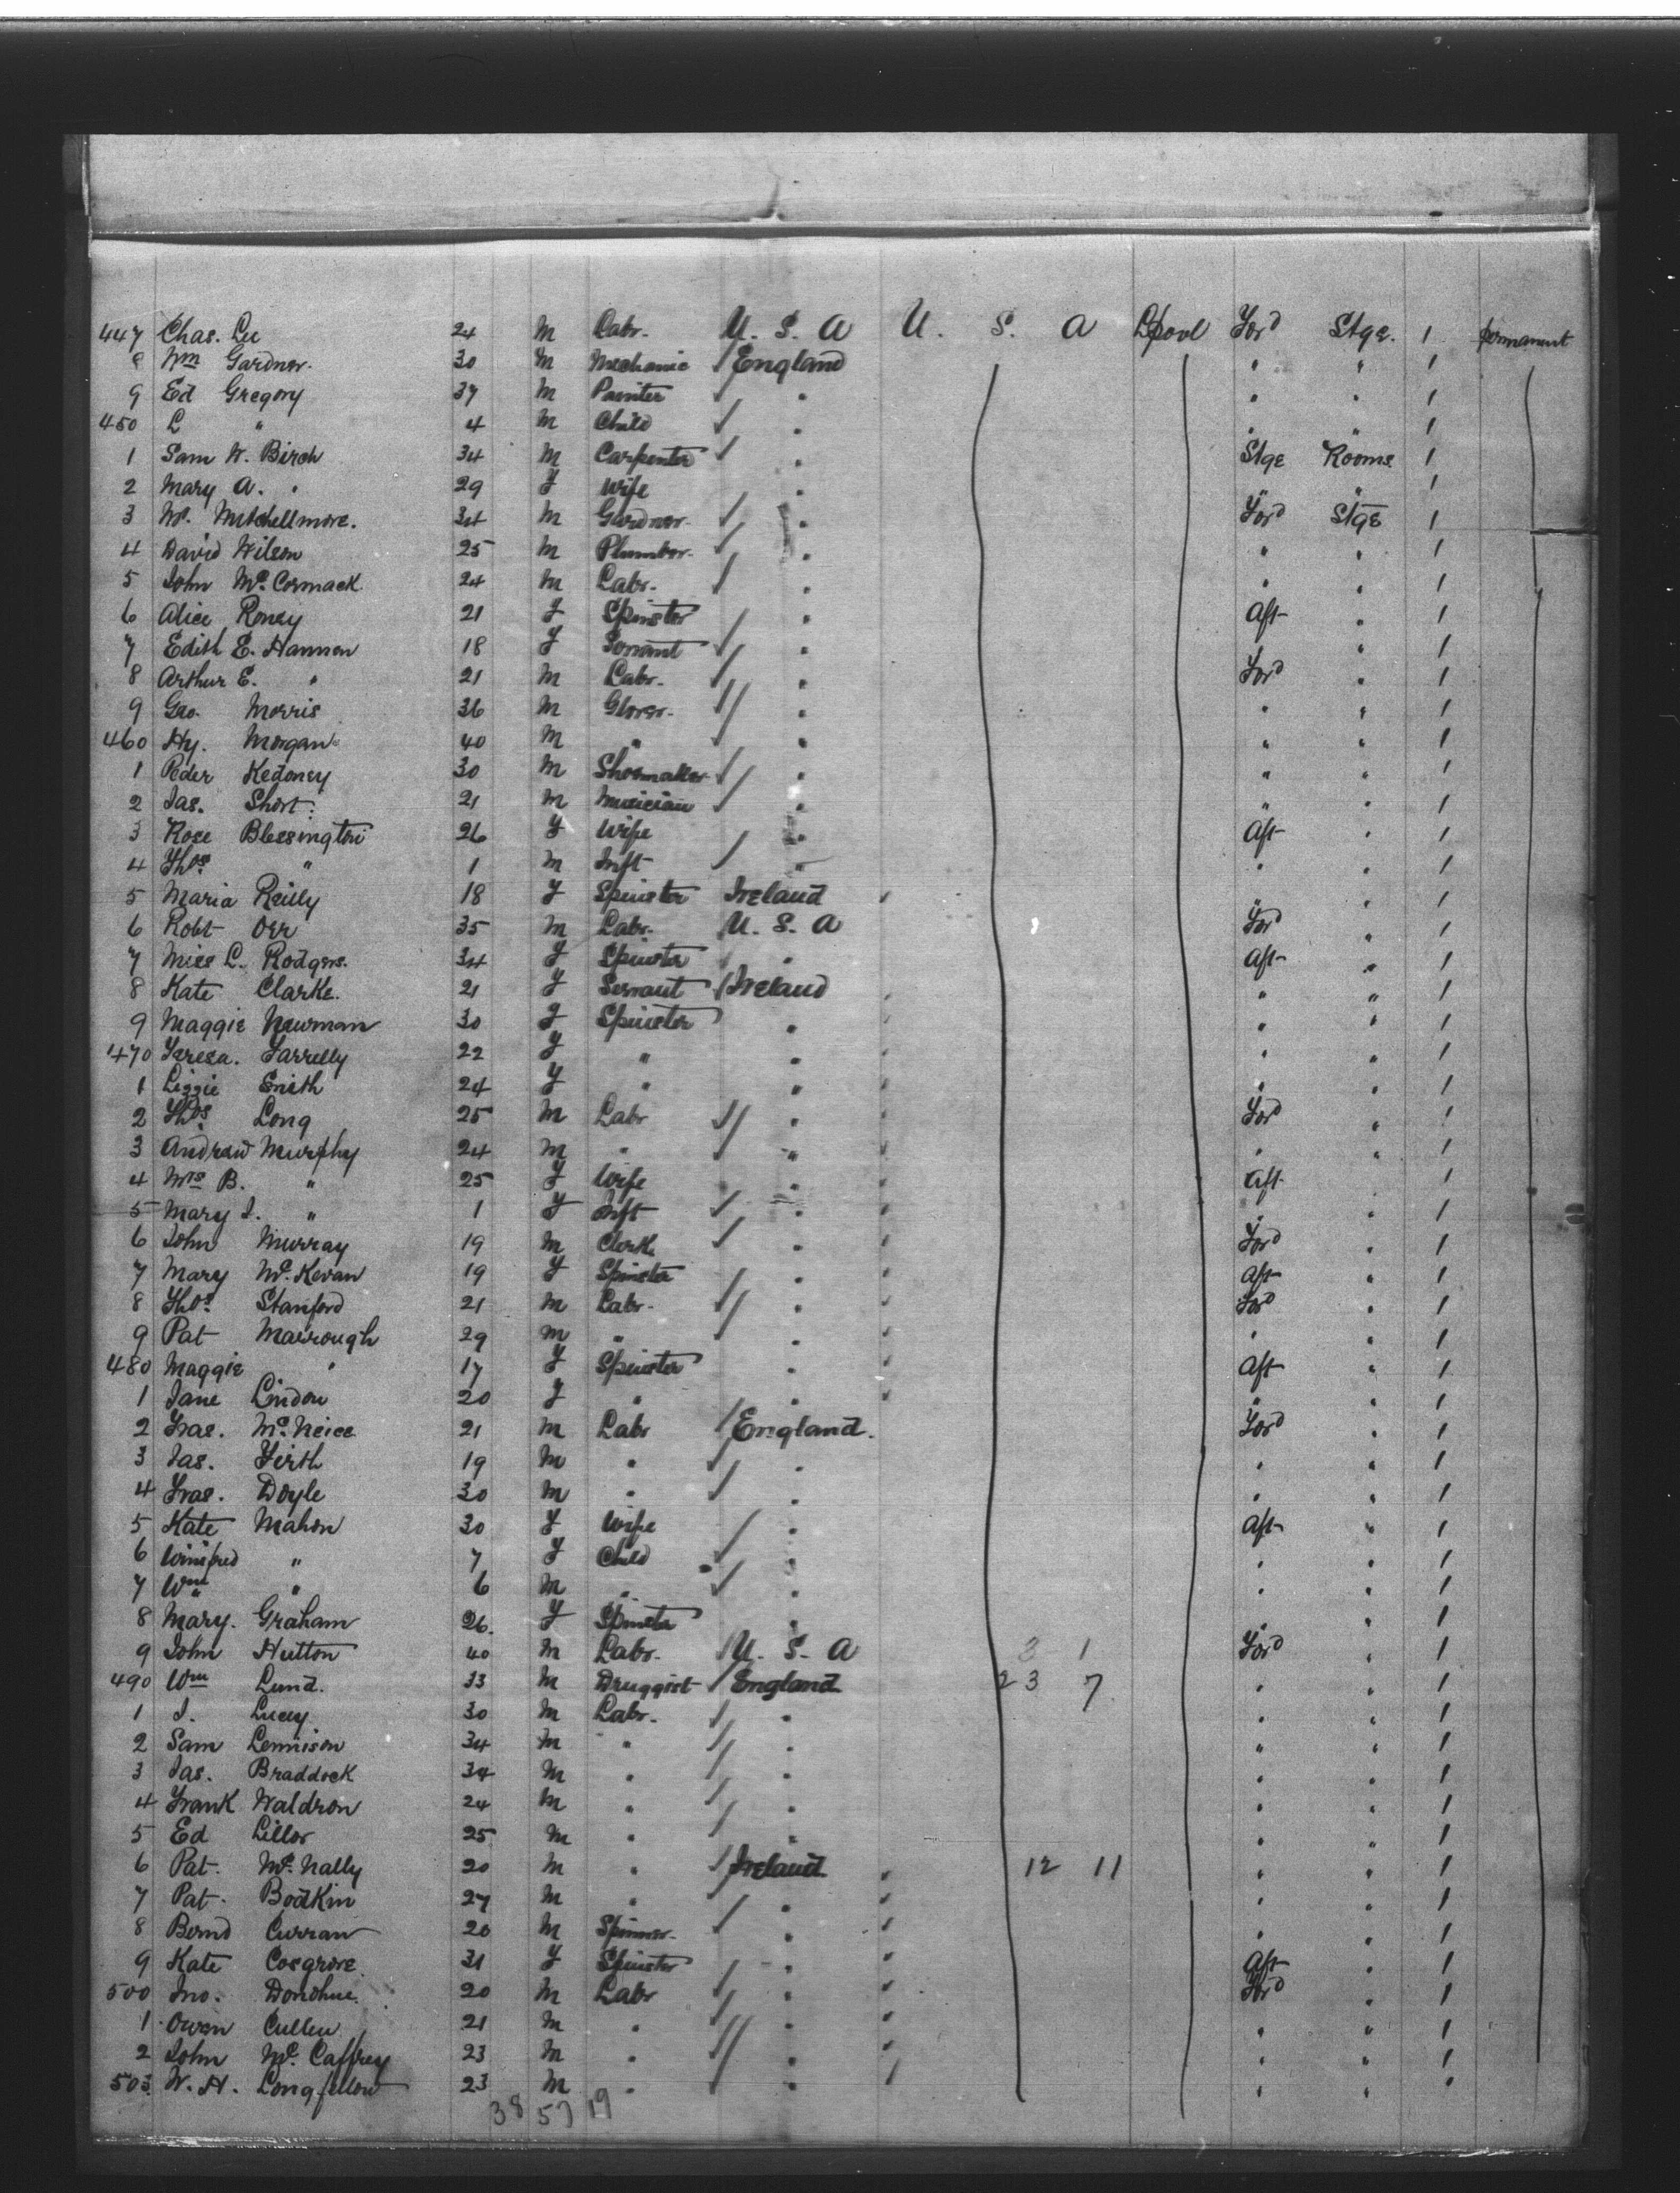 447 Chas. Lee 24 m Labr. U. S. A U. S. A Lpool Ford Stge. 1 permanent
8 Wm Gardner. 30 m Mechanic England " " 1
9 Ed Gregory 37 m Painter " " " 1
450 L " 4 m Child " " " 1
1 Sam W. Birch 34 m Carpenter " Stge Rooms 1
2 Mary A. " 29 F Wife " " " 1
3 W. Mitchellmore. 34 m Gardner. " Ford Stge 1
4 David Wilson 25 m Plumber. " " " 1
5 John McCormack 24 m Labr. " " " 1
6 Alice Roney 21 F Spinster " Aft " 1
7 Edith E. Hannen 18 F Servant " " 1
8 Arthur E. " 21 m Labr. " Ford " 1
9 Geo. Morris 36 m Glover. " " " 1
460 Hy. Morgan 40 m " " " " 1
1 Peder Kedoney 30 m Shoemaker " " " 1
2 Jas. Short. 21 m Musician " " " 1
3 Rose Blessington 26 F Wife Aft " 1
4 Thos " 1 m Inft " " " 1
5 Maria Reilly 18 F Spinster Ireland " " 1
6 Robt Orr 35 m Labr. U. S. A Ford " 1
7 Miss L. Rodgers. 34 F Spinster " Aft " 1
8 Kate Clarke. 21 F Servant Ireland " " 1
9 Maggie Newman 30 F Spinster " " " 1
470 Teresa. Farrelly 22 F " " " " 1
1 Lizzie Smith 24 F " " " " 1
2 Thos Long 25 m Labr " Ford " 1
3 Andrew Murphy 24 m " " " " 1
4 Mrs B. " 25 F Wife " Aft " 1
5 Mary J. " 1 F Inft " " " 1
6 John Murray 19 m Clerk " Ford " 1
7 Mary McKevan 19 F Spinster " Aft " 1
8 Thos. Stanford 21 m Labr. " Ford " 1
9 Pat Marrough 29 m " " " 1
480 Maggie " 17 F Spinster " Aft " 1
1 Jane Lindon 20 F " " " " 1
2 Fras. McNeice 21 m Labr England. Ford " 1
3 Jas. Firth 19 m " " " " 1
4 Fras. Doyle 30 m " " " " 1
5 Kate Mahon 30 F Wife " Aft " 1
6 Winifred " 7 F Child " " " 1
7 Wm " 6 m " " " " 1
8 Mary. Graham 26. F Spinster " " " 1
9 John Hutton 40 m Labr. U. S. A 3 1 Ford " 1
490 Wm Lund. 33 m Druggist England 23 7 " " 1
1 J. Lucey 30 m Labr. " " " 1
2 Sam Lennison 34 m " " " " 1
3 Jas. Braddock 34 m " " " " 1
4 Frank Waldron 24 m " " " " 1
5 Ed Lillor 25 m " " " " 1
6 Pat. McNally 20 m " Ireland " 12 11 " " 1
7 Pat. Bodkin 27 m " " " " 1
8 Bernd Curran 20 m Spinner. " " " 1
9 Kate Cosgrove 31 F Spinster " Aft " 1
500 Jno. Donohue. 20 m Labr " Ford " 1
1 Owen Cullen 21 m " " " " 1
2 John McCaffrey 23 m " " " " 1
503. W. H. Longfellow 23 m " " " " 1
38 57 19